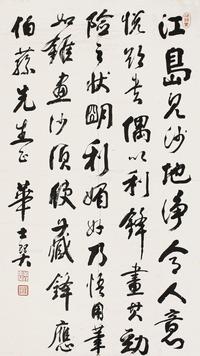 江島見沙地淨令人意
悅欲書偶以利鋒畫其勁
險之狀明利媚好乃悟用筆
如錐畫沙須使藏鋒應
伯蓀先生正
華世奎